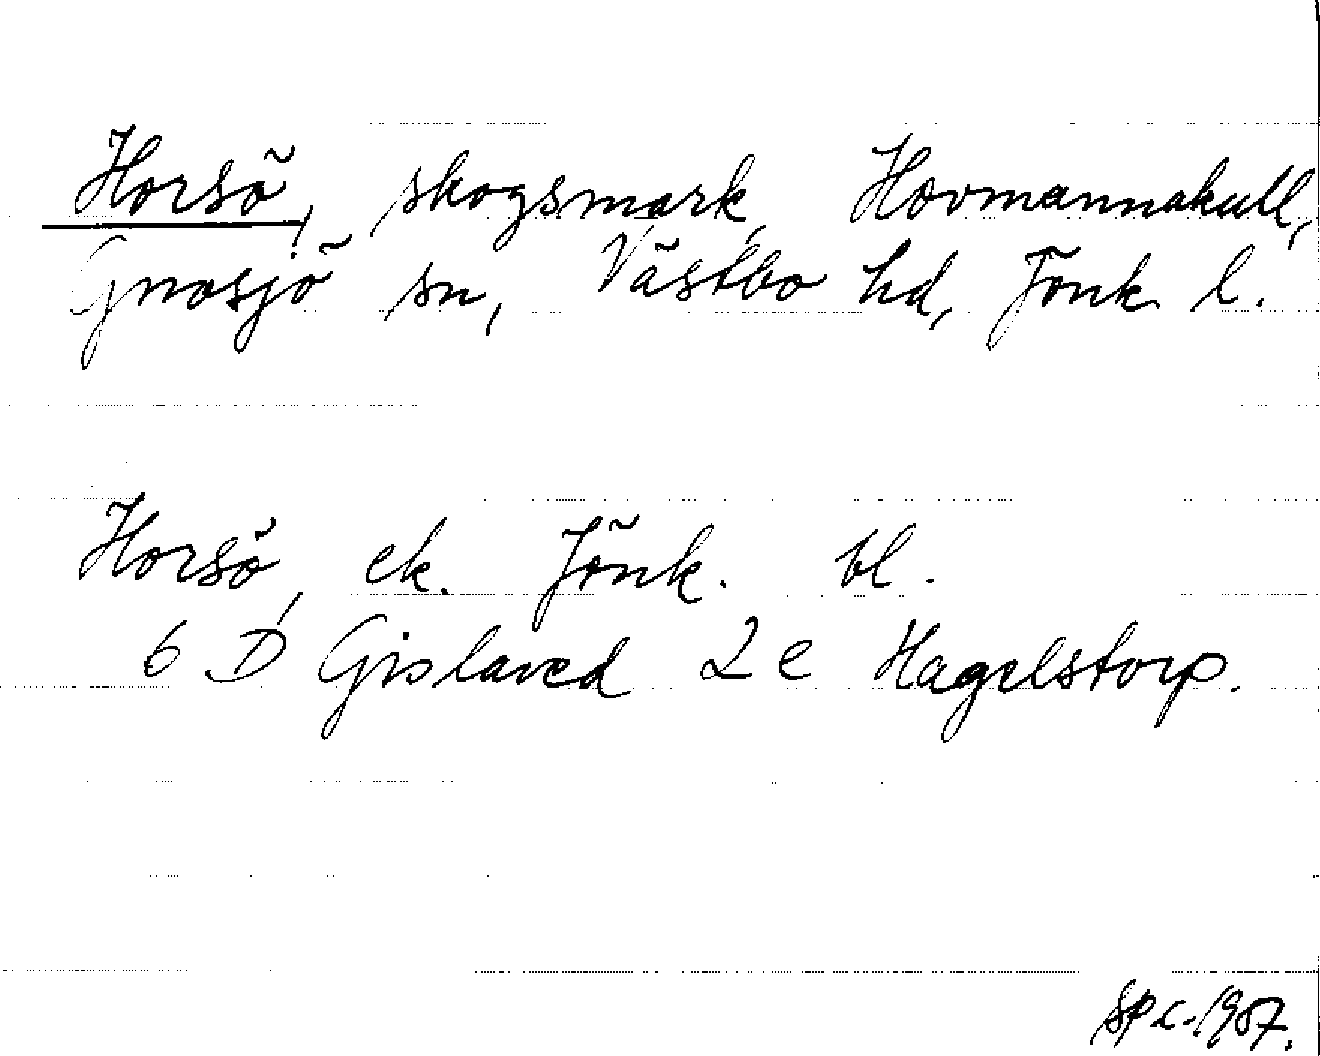 Horsö, skogsmark, Hovmannakull,
Gnosjö sn, Västbo hd, Jönk. l.
Horsö, ek. Jönk. bl.
6 D Gislaved 2 e Hagelstorp.
1987.